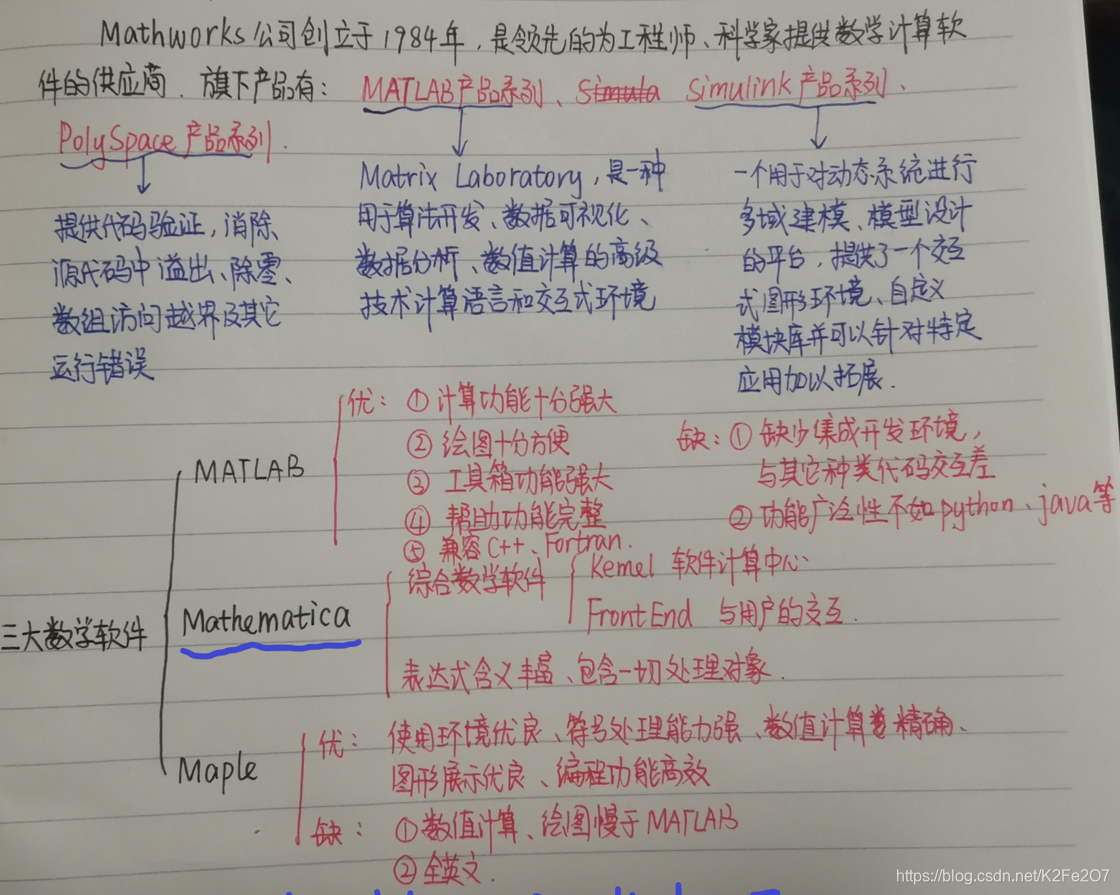 Mathworks公司创立于1984年，是领先的为工程师、科学家提供数学计算软
件的供应商．旗下产品有：MATLAB产品系列、Simula Simulink产品系列．
PolySpace产品系列．
提供代码验证，消除
源代码中溢出、除零、
数组访问越界及其它
运行错误
Matrix Laboratory，是一种
用于算法开发、数据可视化、
数据分析、数值计算的高级
技术计算语言和交互式环境
一个用于对动态系统进行
多域建模、模型设计
的平台，提供了一个交互
式图形环境、自定义
模块库并可以针对特定
应用加以拓展．
三大数学软件
MATLAB
优：①计算功能十分强大
②绘图十分方便
③工具箱功能强大
④帮助功能完整
⑤兼容C++、Fortran．
缺：①缺少集成开发环境，
与其它种类代码交互差
②功能广泛性不如python、java等
Mathematica
综合数学软件
Kernel 软件计算中心
FrontEnd 与用户的交互．
表达式含义丰富、包含一切处理对象．
Maple
优：使用环境优良、符号处理能力强、数值计算精确、
图形展示优良、编程功能高效
缺：①数值计算、绘图慢于MATLAB
②全英文．
https://blog.csdn.net/K2Fe2O7